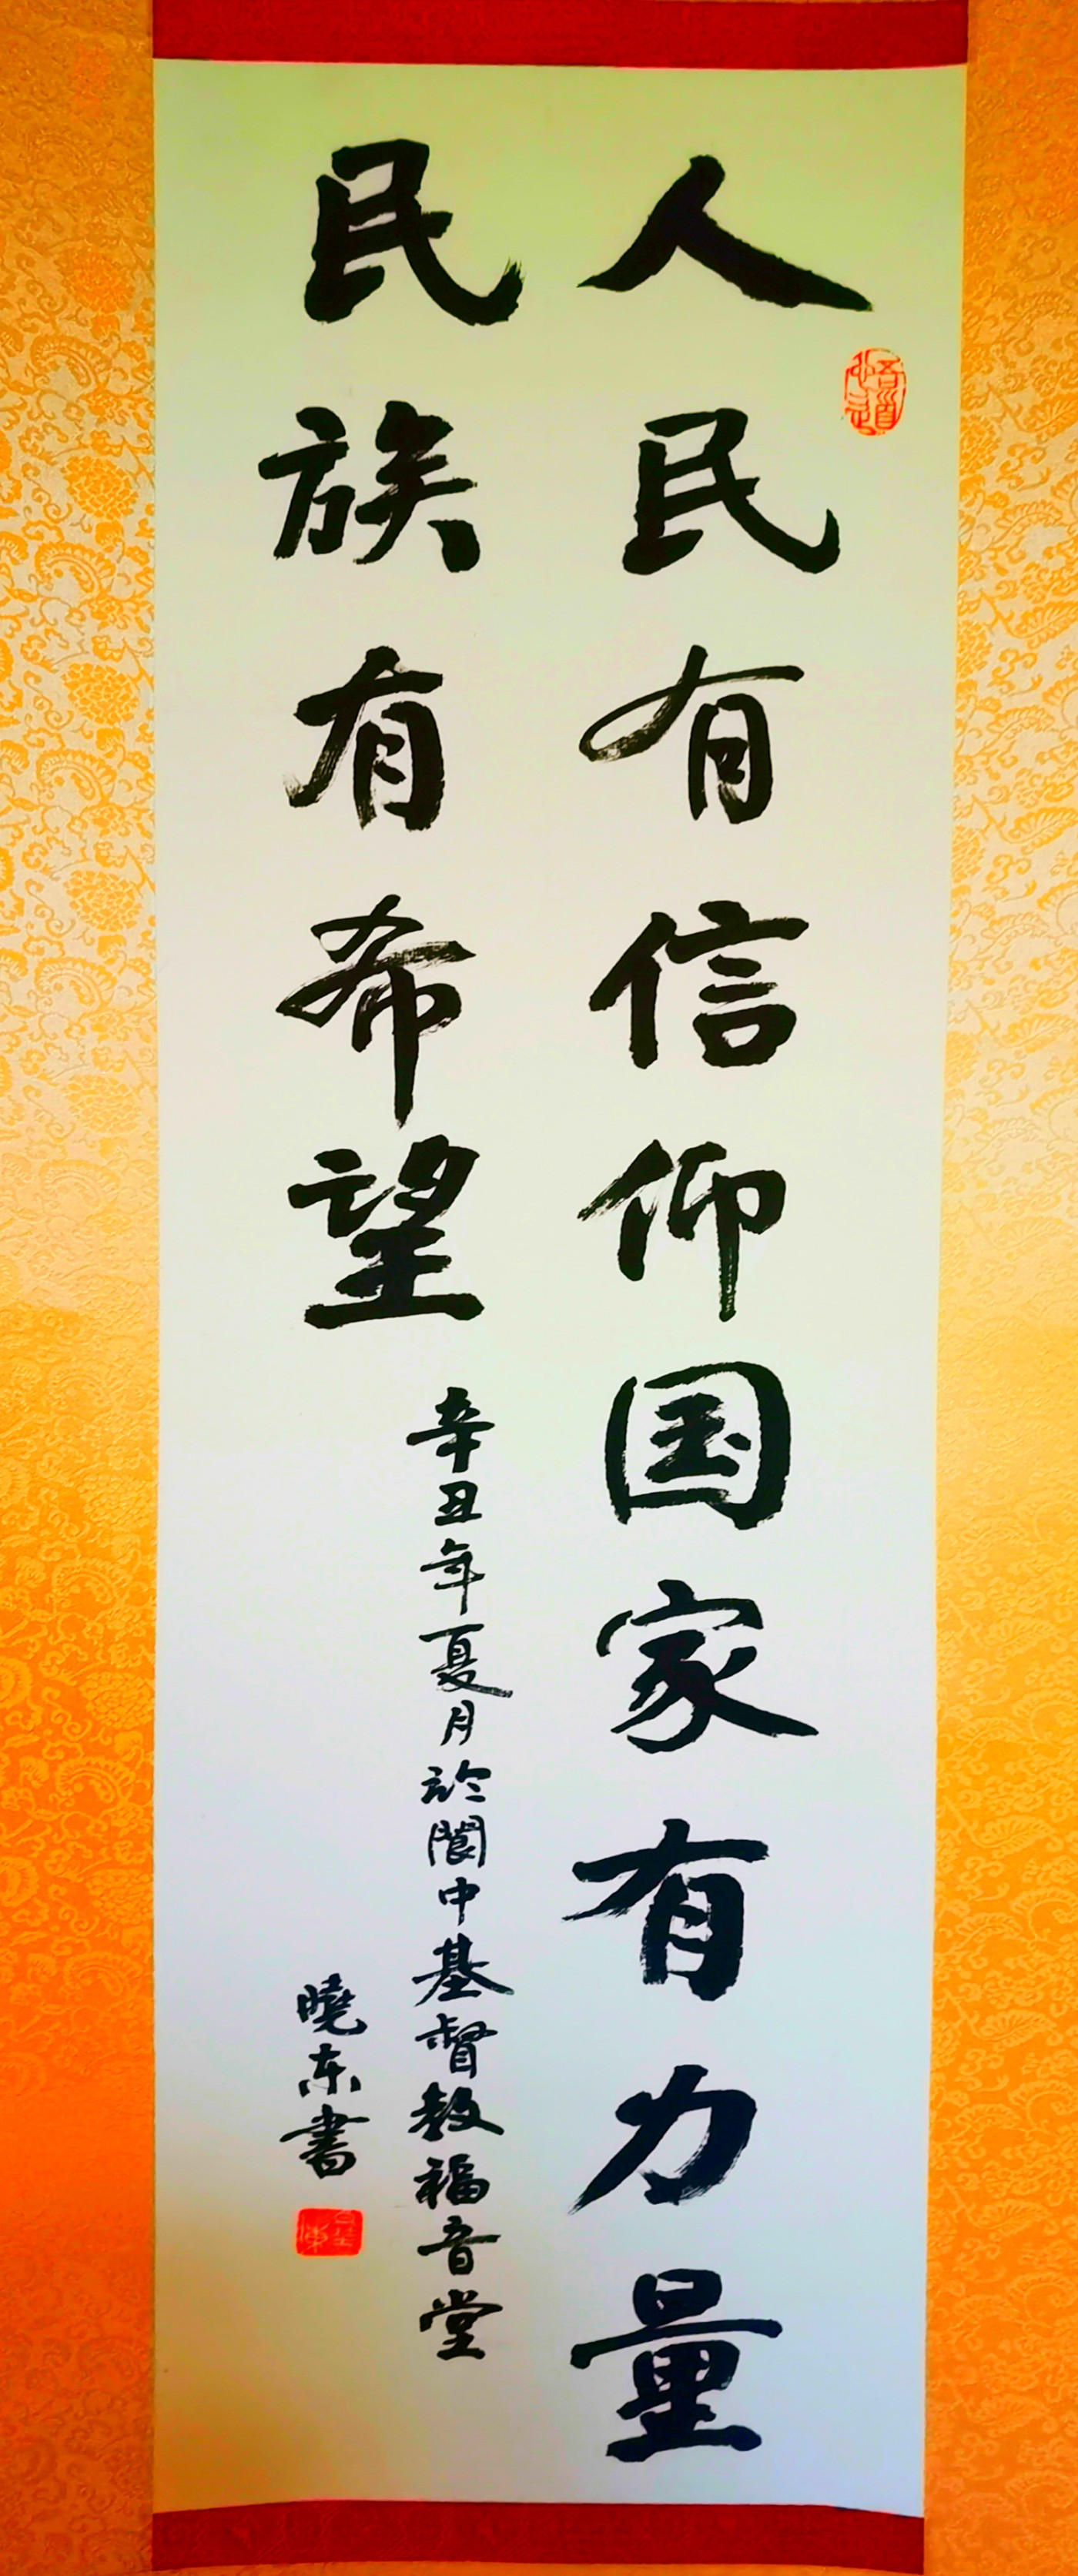 人民有信仰国家有力量
民族有希望
辛丑年夏月於閬中基督教福音堂
曉东書